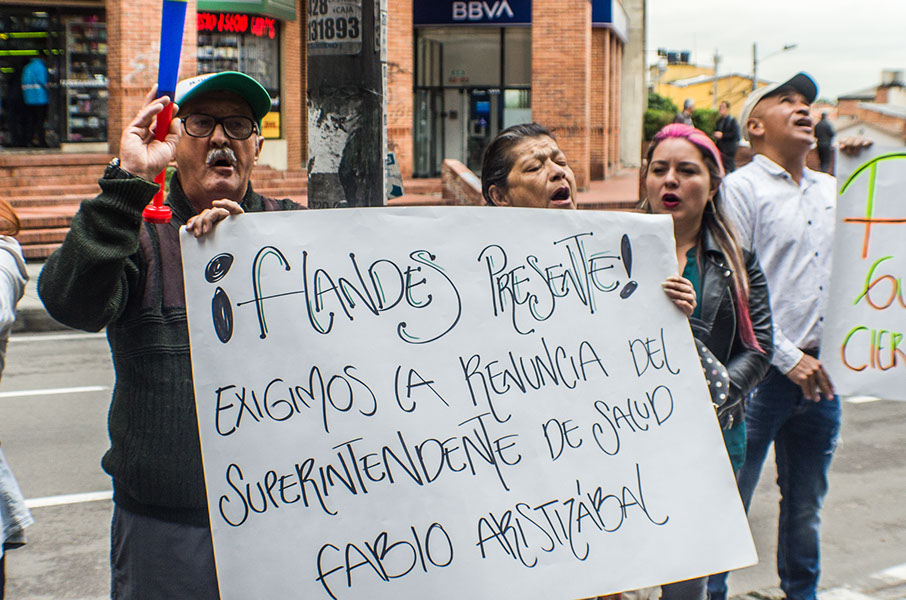 BBVA
CAJA
31893
¡FLANDES PRESENTE!
EXIGIMOS LA RENUNCIA DEL
SUPERINTENDENTE DE SALUD
FABIO ARISTIZÁBAL
CIER